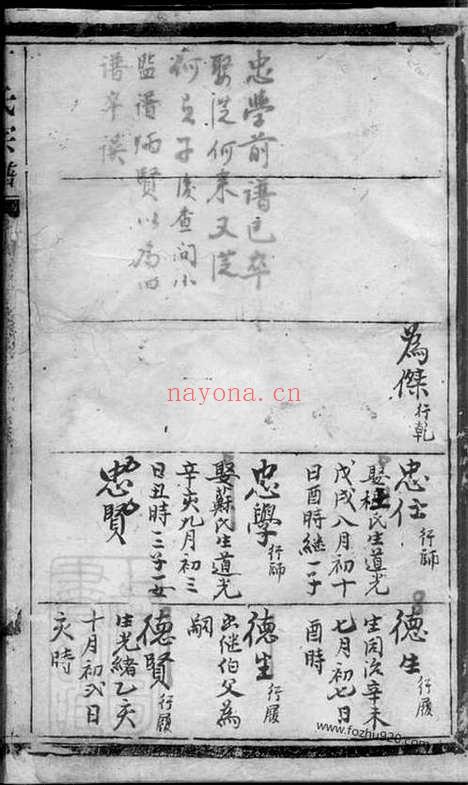 忠學前譜已卒
娶洪何秉又洪
何良子後查問小
監譜炳賢以為四
譜卒誤
為傑行乾
忠任行師
娶桂氏生道光
戊戌八月初十
日酉時繼一子
忠學行師
娶蘇氏生道光
辛亥九月初三
日丑時三子一女
忠賢
德生行履
生同治辛未
七月初七日
酉時
德生行履
出继伯父為
嗣
德賢行履
生光緒乙亥
十月初六日
亥時
nayona.cn
www.fozhu920.com